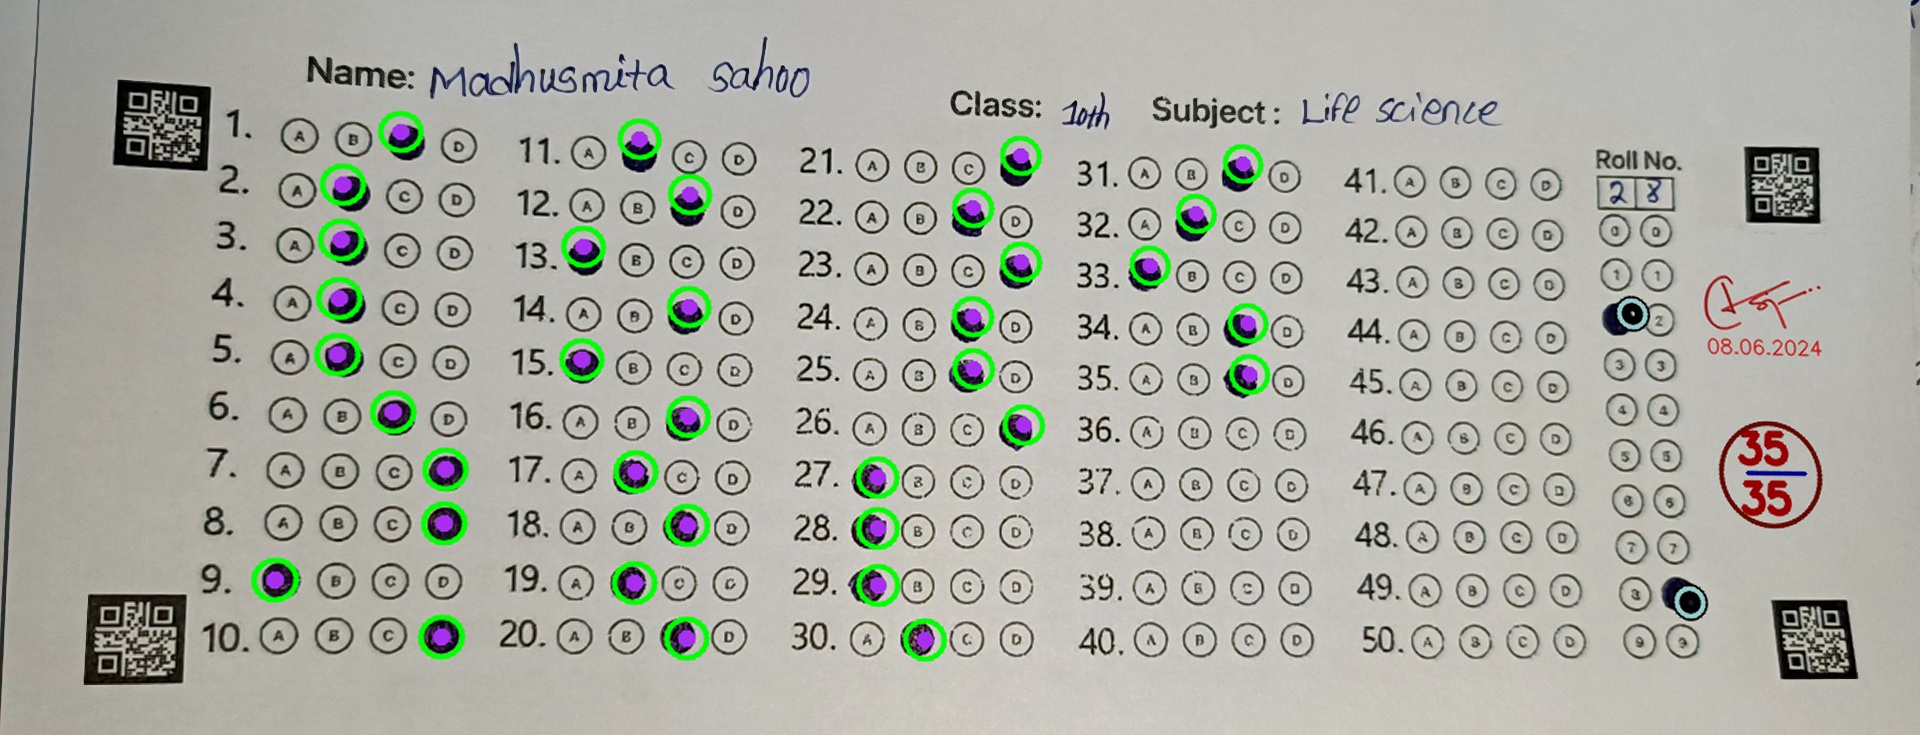 Name: Madhusmita sahoo
Class: 10th Subject: Life science
Roll No.
2 8
1. A B D
2. A C D
3. A C D
4. A C D
5. A C D
6. A B D
7. A B C
8. A B C
9. B C D
10. A B C
11. A C D
12. A B D
13. B C D
14. A B D
15. B C D
16. A B D
17. A C D
18. A B D
19. A C D
20. A B D
21. A B C
22. A B D
23. A B C
24. A B D
25. A B D
26. A B C
27. B C D
28. B C D
29. B C D
30. A C D
31. A B D
32. A C D
33. B C D
34. A B D
35. A B D
36. A B C D
37. A B C D
38. A B C D
39. A B C D
40. A B C D
41. A B C D
42. A B C D
43. A B C D
44. A B C D
45. A B C D
46. A B C D
47. A B C D
48. A B C D
49. A B C D
50. A B C D
0 0
1 1
2
3 3
4 4
5 5
6 6
7 7
8
9 9
08.06.2024
35
35